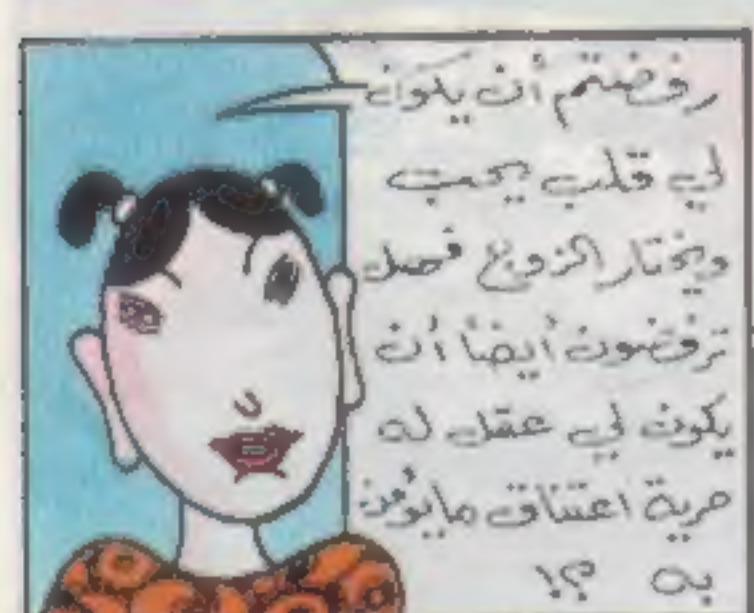 رفضتم أن يكون
لي قلب يحب
ويختار الزوج فهل
ترفضون أيضاً أن
يكون لي عقل له
حرية اعتناق مايؤمن
به ؟!